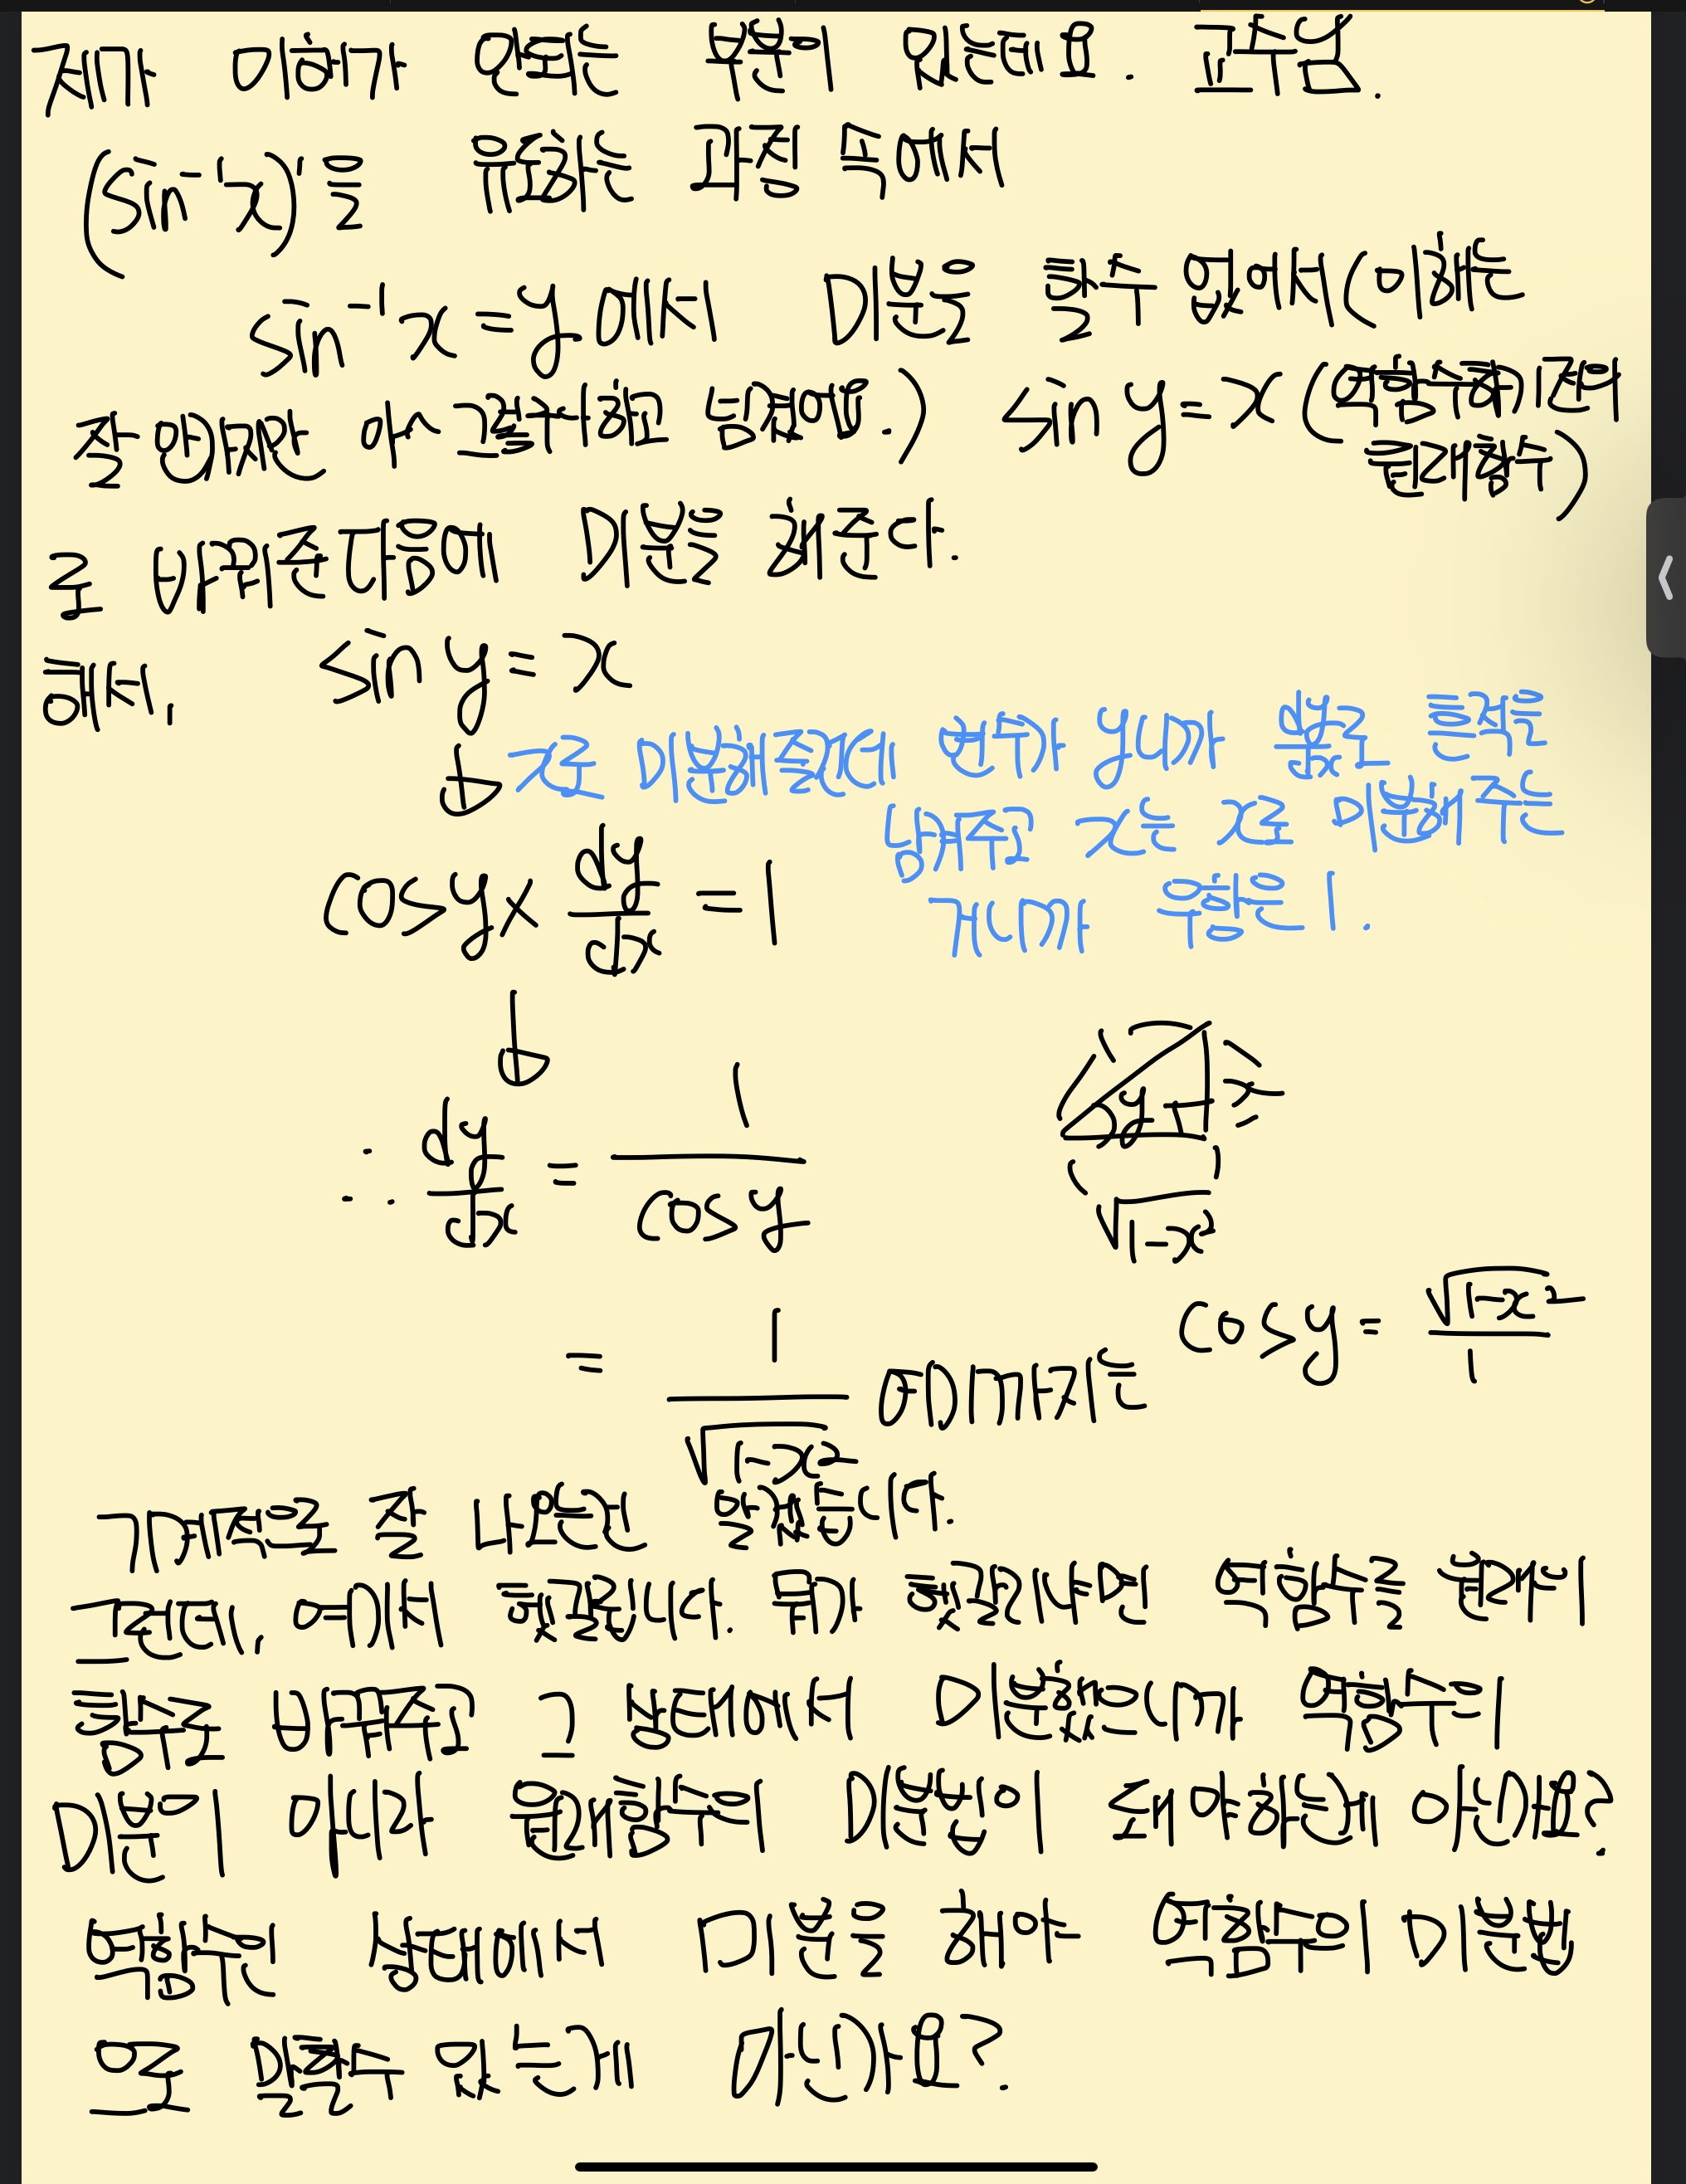 제가 이해가 안되는 부분이 있는데요. 교수님.
(sin⁻¹x)'을 유도하는 과정 속에서
sin⁻¹x = y에서 미분을 할수 없어서(이해는
잘 안가지만 아 그렇구나 하고 넘어가요.) sin y = x (역함수화) 전의
원래함수)
로 바꿔준다음에 미분을 해준다.
해서, sin y = x
x로 미분해줄건데 변수가 y니까 dy/dx로 흔적을
남겨주고 x는 x로 미분해주는
거니까 우항은 1.
cosy × dy/dx = 1
1
y
x
√1-x²
∴ dy/dx = 1/cosy
cosy = √1-x²/1
= 1/√1-x² 여기까지는
기계적으로 잘 나오는건 알겠습니다.
그런데, 여기서 헷갈립니다. 뭐가 헷갈리냐면 역함수를 원래의
함수로 바꿔주고 그 상태에서 미분했으니까 역함수의
미분이 아니라 원래함수의 미분법이 돼야하는게 아닌가요?
역함수인 상태에서 미분을 해야 역함수의 미분법
으로 말할수 있는게 아닌가요?